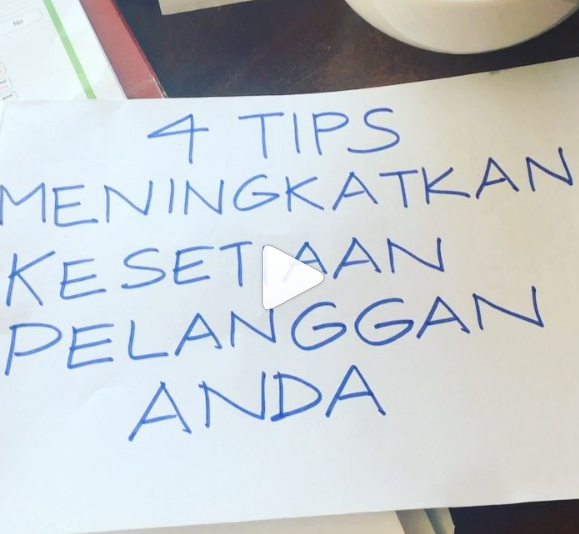 4 TIPS
MENINGKATKAN
KESETIAAN
PELANGGAN
ANDA